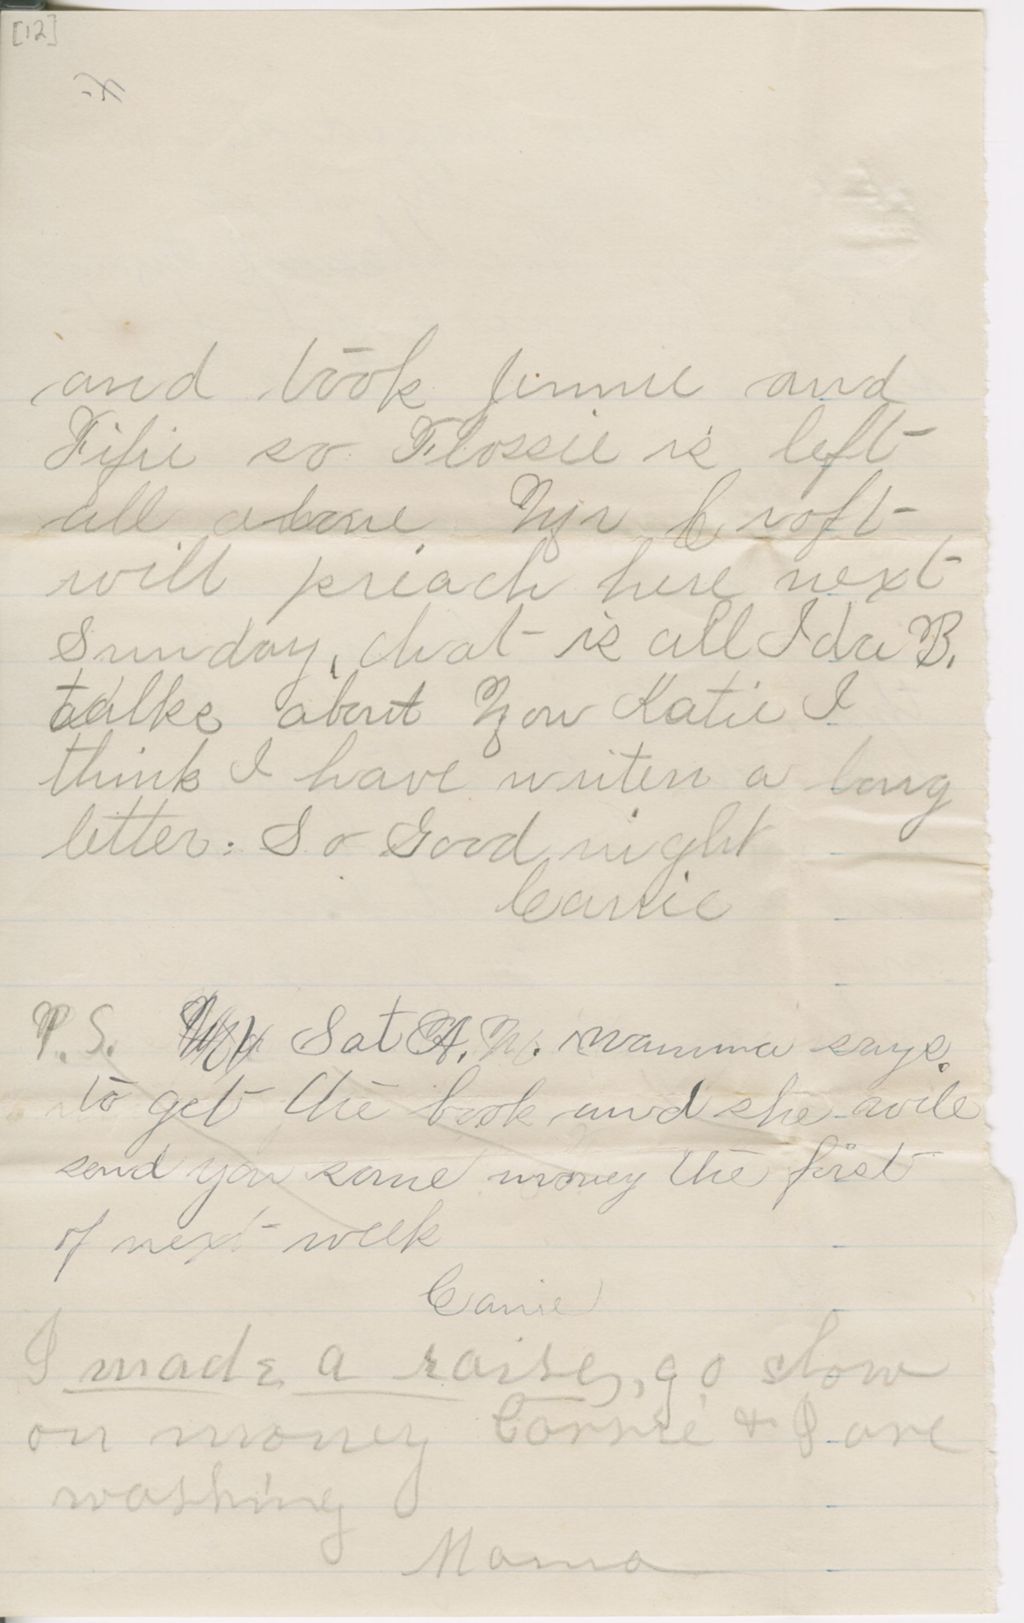 [12]
and took Jennie and
Fifie so Flossie is left
all alone Mr Croft
will preach here next
Sunday, that is all Ida B.
talks about Now Katie I
think I have writen a long
letter. So Good night
Carrie
P.S. Sat A.M. mamma says.
to get the book and she will
send you some money the first
of next week
Carrie
I made a raise, go slow
on money Carrie & I are
washing
Mama